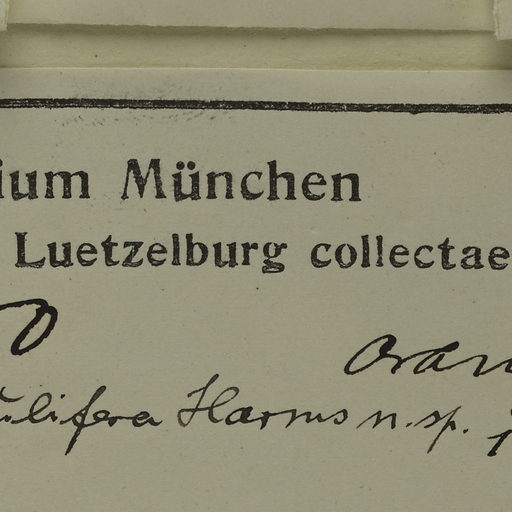 ium München
Luetzelburg collectae
ulifera Harms n. sp.